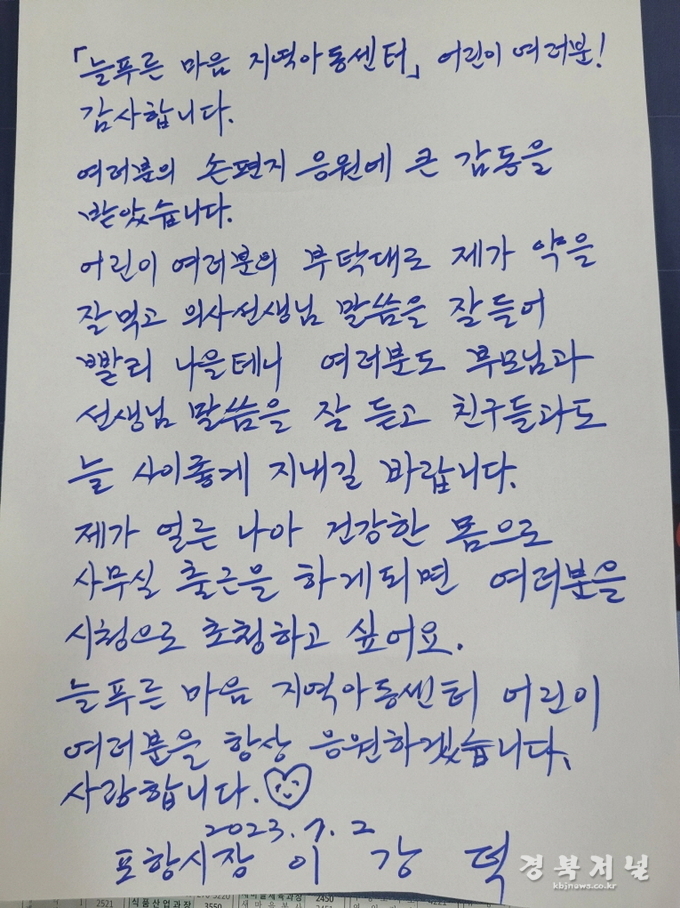 「늘푸른 마음 지역아동센터」 어린이 여러분!
감사합니다.
여러분의 손편지 응원에 큰 감동을
받았습니다.
어린이 여러분의 부탁대로 제가 약을
잘먹고 의사선생님 말씀을 잘들어
빨리 나을테니 여러분도 부모님과
선생님 말씀을 잘 듣고 친구들과도
늘 사이좋게 지내길 바랍니다.
제가 얼른 나아 건강한 몸으로
사무실 출근을 하게되면 여러분을
시청으로 초청하고 싶어요.
늘푸른 마음 지역아동센터 어린이
여러분을 항상 응원하겠습니다.
사랑합니다.
2023.7.2
포항시장 이 강 덕
경북저널
kbjnuws.co.kr
2521 식품산업과장 3550 2450